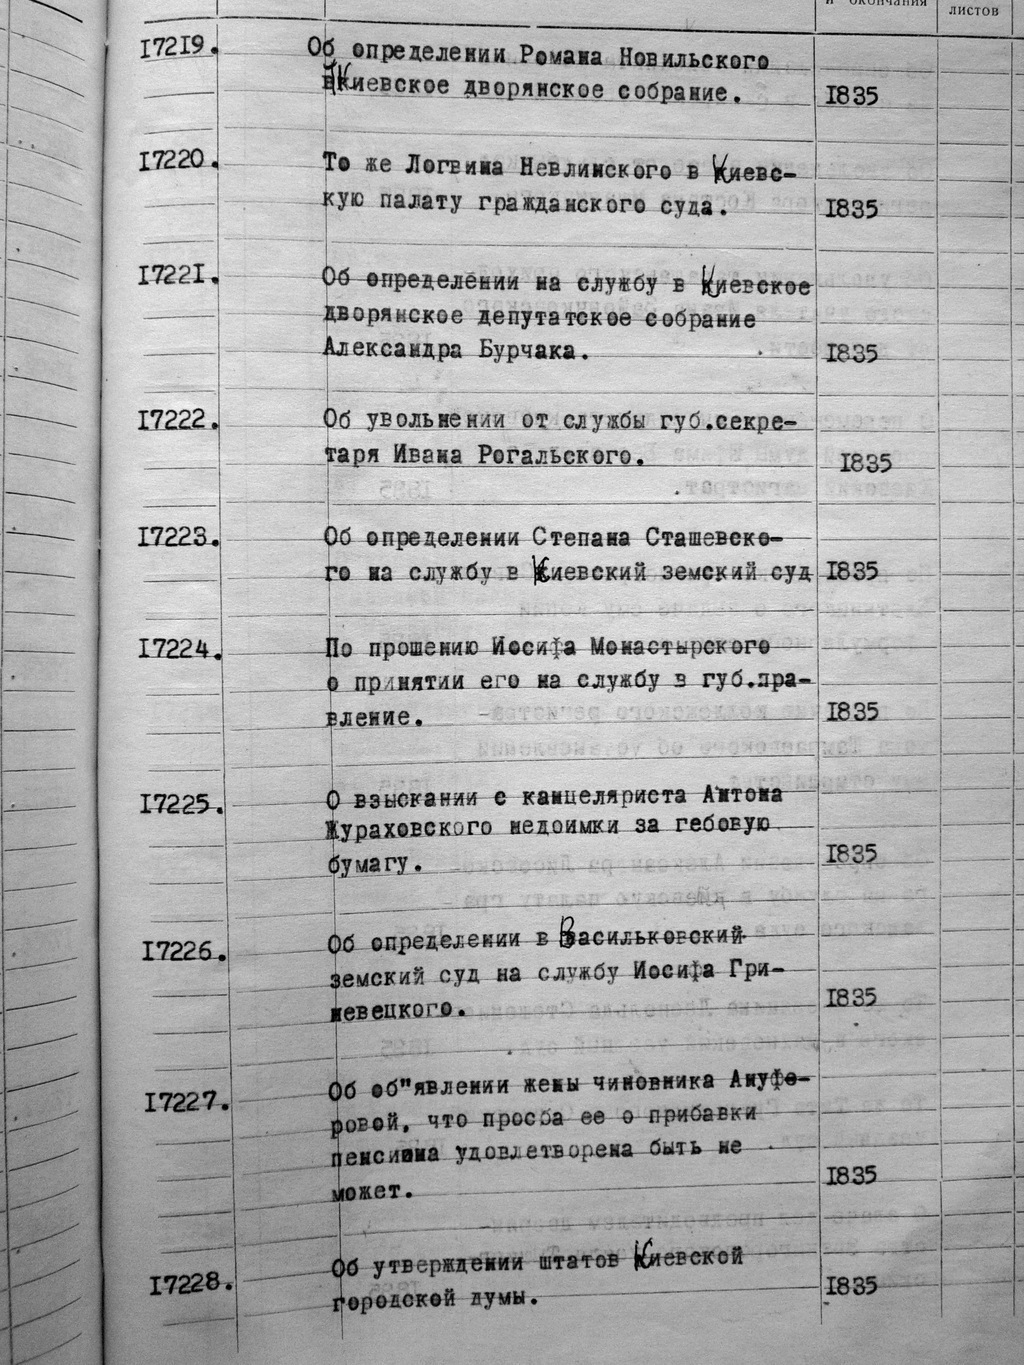 и окончания
листов
17219. Об определении Романа Новильского
в Киевское дворянское собрание. 1835
17220. То же Логвина Невлинского в Киевс-
кую палату гражданского суда. 1835
17221. Об определении на службу в Киевское
дворянское депутатское собрание
Александра Бурчака. 1835
17222. Об увольнении от службы губ.секре-
таря Ивана Рогальского. 1835
17223. Об определении Степана Сташевско-
го на службу в Киевский земский суд 1835
17224. По прошению Иосифа Монастырского
о принятии его на службу в губ.пра-
вление. 1835
17225. О взыскании с канцеляриста Антона
Жураховского недоимки за гебовую
бумагу. 1835
17226. Об определении в Васильковский
земский суд на службу Иосифа Гри-
невецкого. 1835
17227. Об об"явлении жены чиновника Ануфе-
ровой, что просба ее о прибавки
пенсиона удовлетворена быть не
может. 1835
17228. Об утверждении штатов Киевской
городской думы. 1835